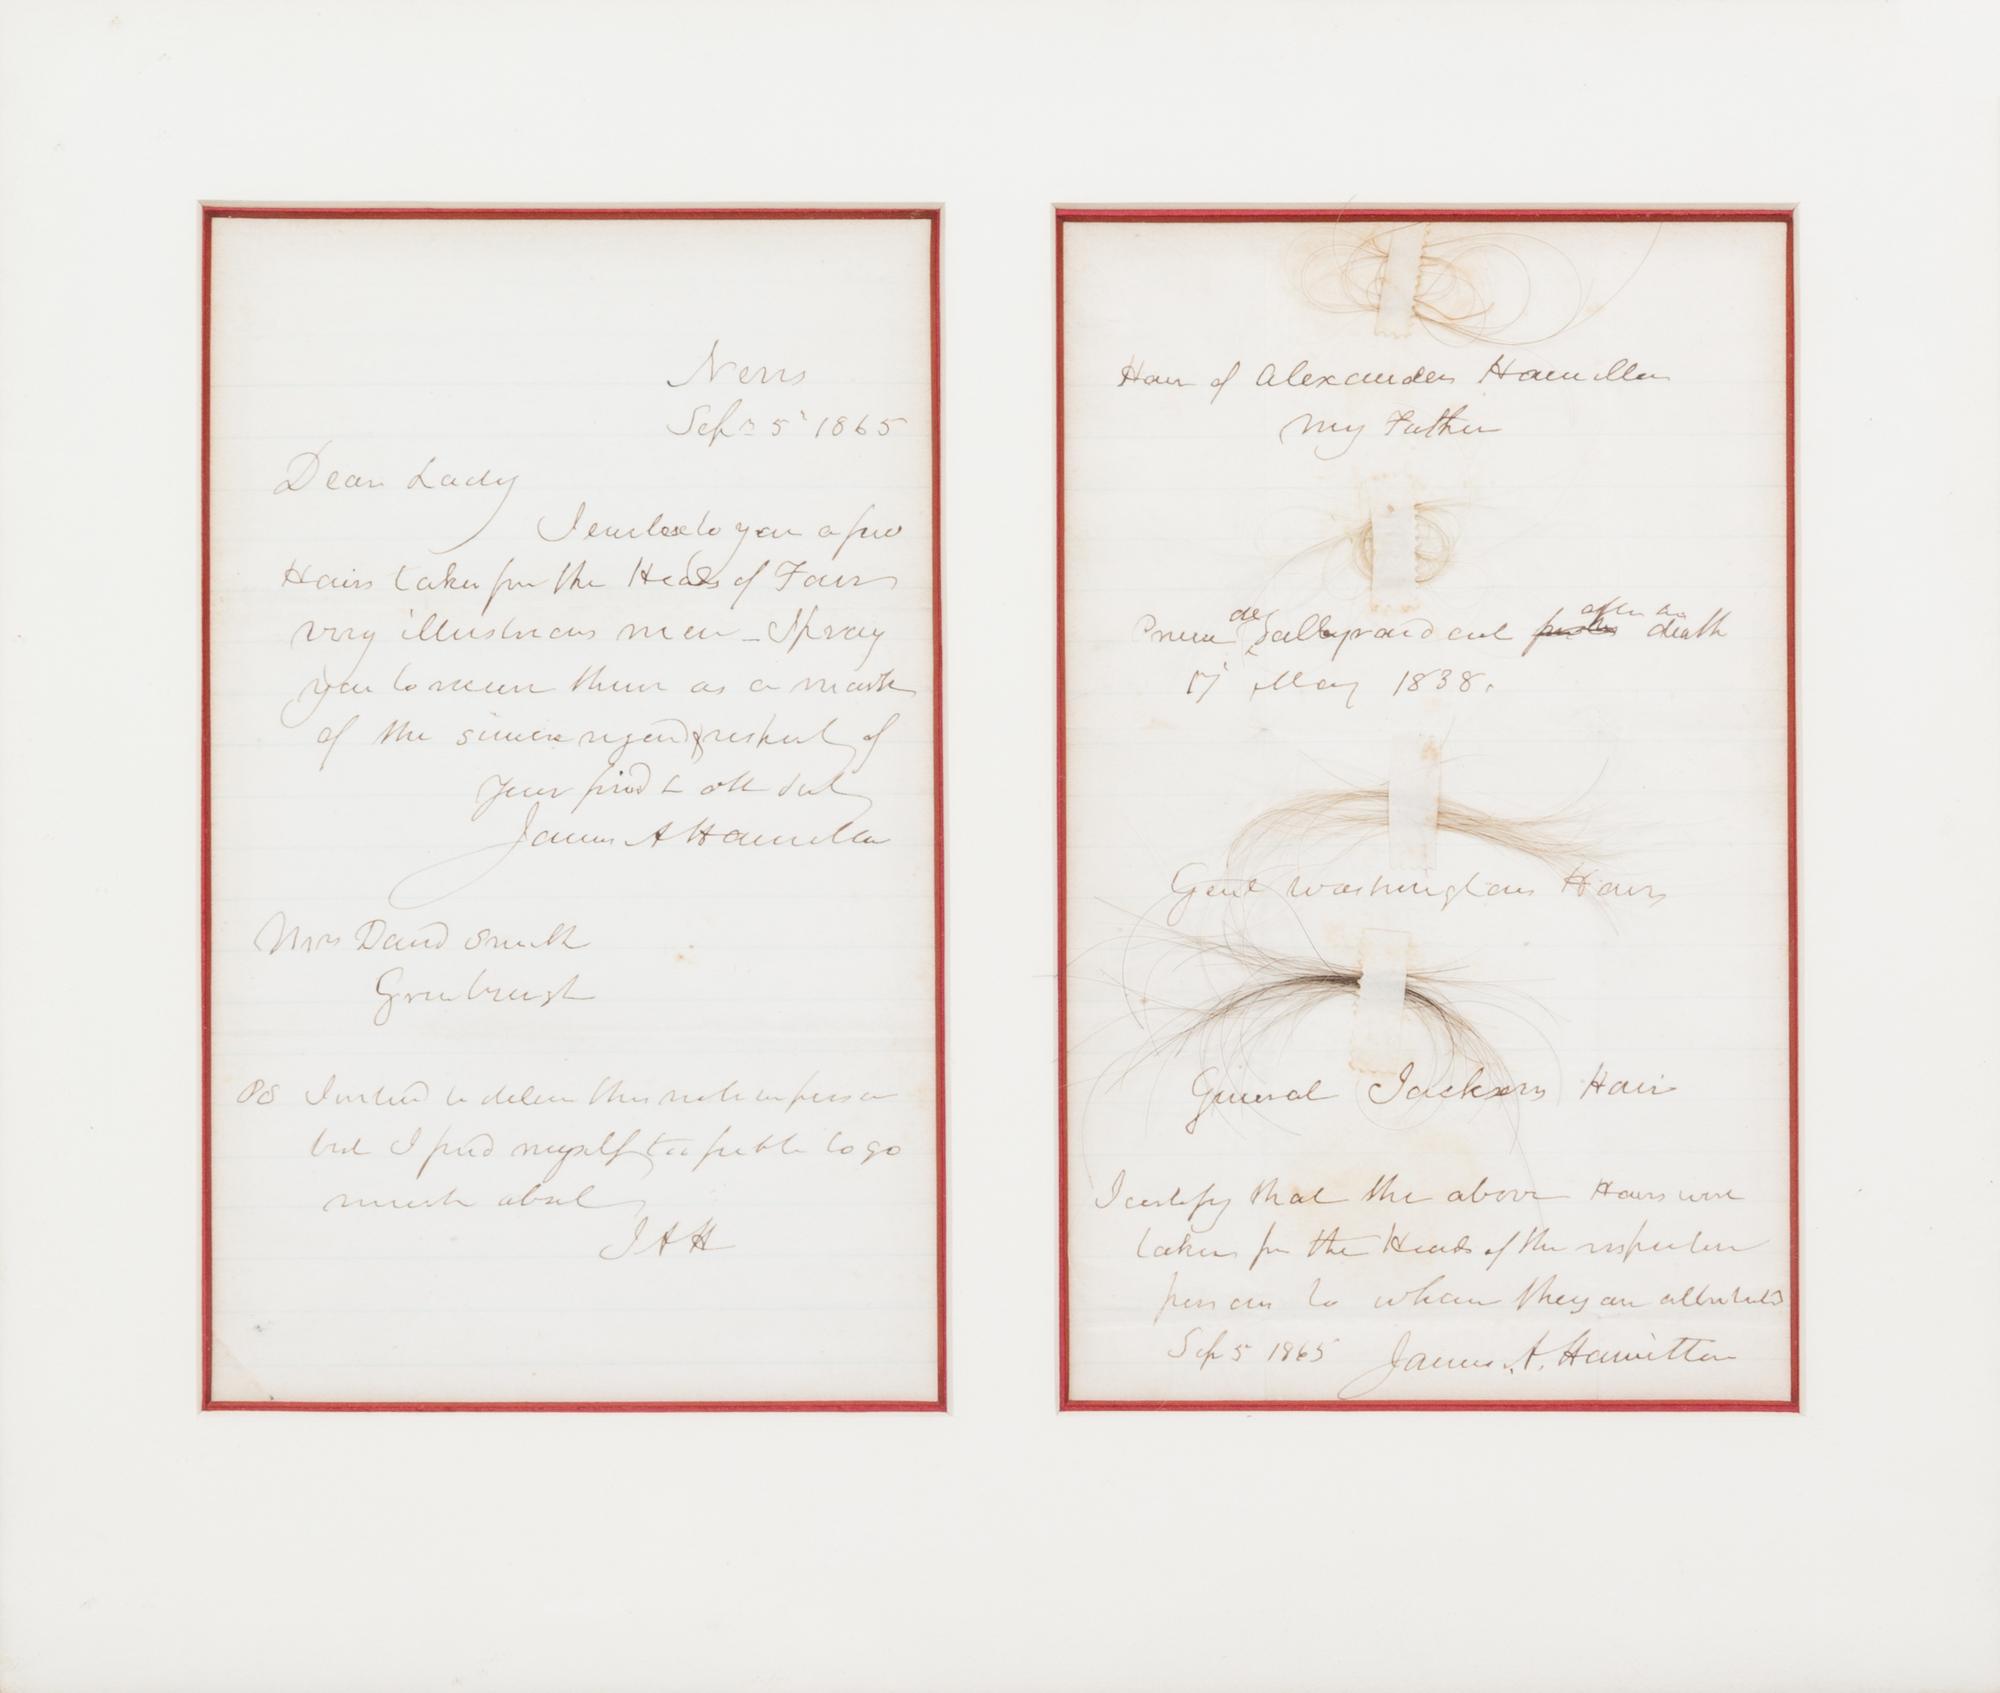 Nevis
Sep 5 1865
Dear Lady
I enclose to you a few
Hairs taken from the Heads of Four
very illustrious men _ I pray
you to receive them as a mark
of the sincere regard & respect of
Your friend &
James A Hamilton
Mrs David Smith
PS I intend to deliver this note in person
but I find myself too feeble to go
much about
J A H
Hair of Alexander Hamilton
My Father
Prince de Talleyrand cut after death
17 May 1838.
Genl Washingtons Hairs
General Jacksons Hair
I certify that the above Hairs were
taken from the Heads of the respective
persons to whom they are attributed
Sep 5 1865 James A. Hamilton